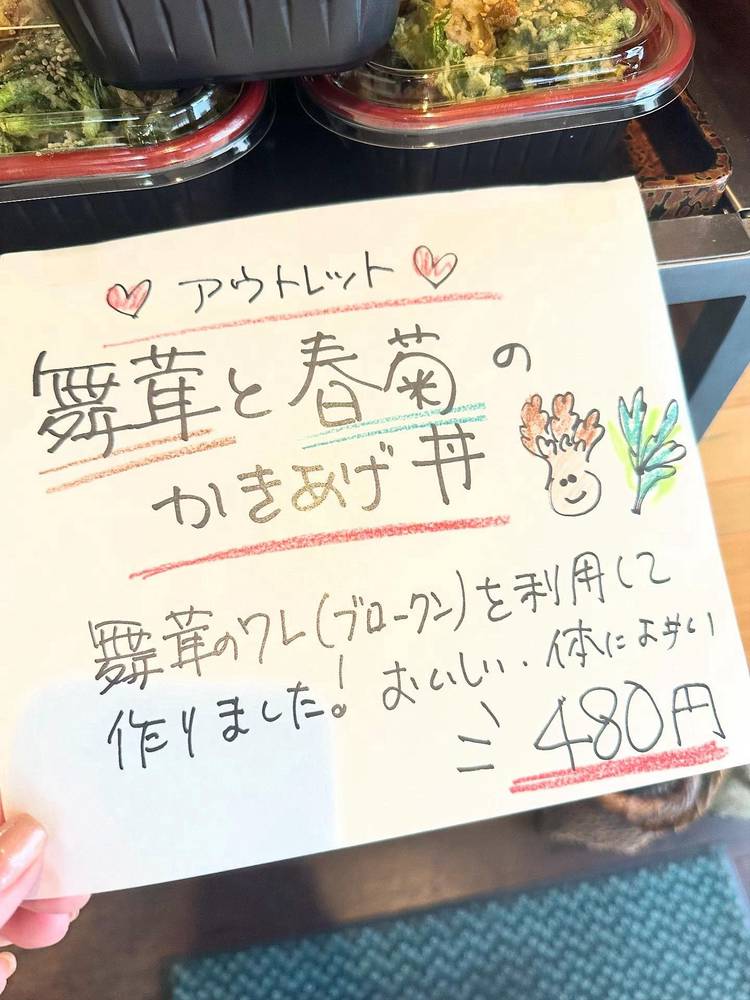 アウトレット
舞茸と春菊の
かきあげ丼
舞茸のワレ(ブロークン)を利用して
作りました! おいしい・体によい
480円